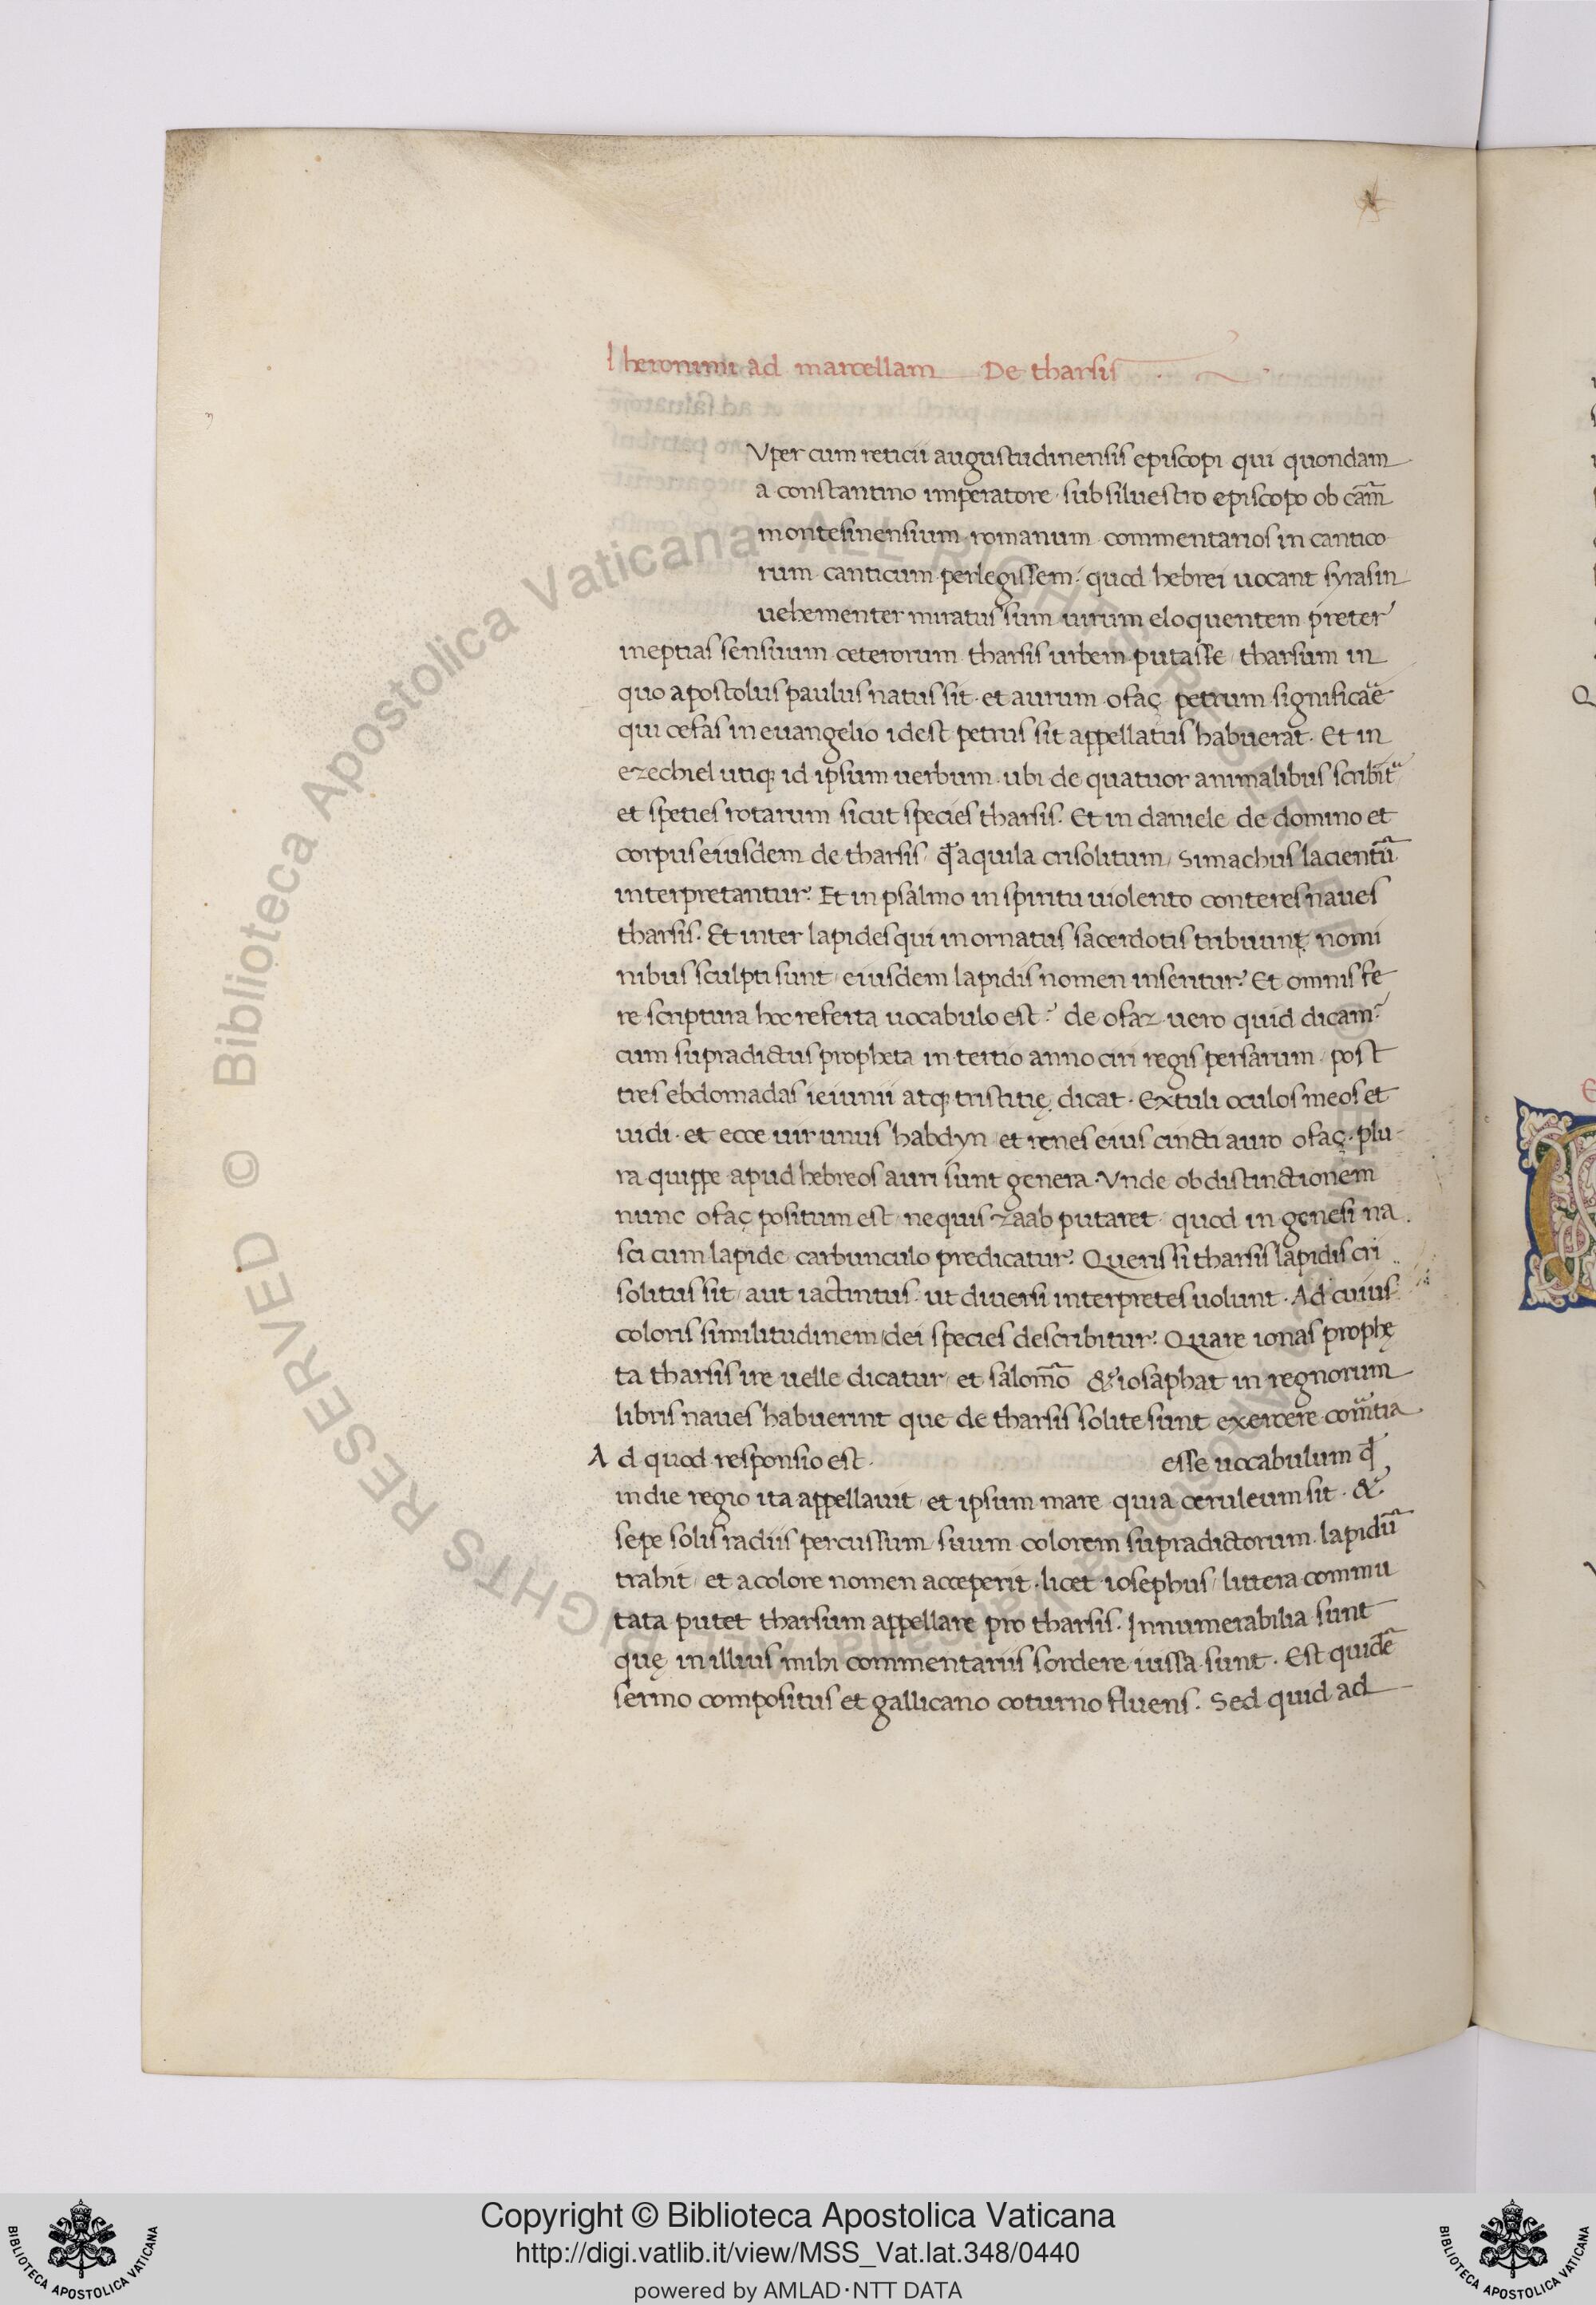 Iheronimi ad marcellam De tharsis
Vper cum reticii augustudinensis episcopi qui quondam
a constantino imperatore sub siluestro episcopo ob cãm
montesinensium romanum commentarios in cantico
rum canticum perlegissem quod hebrei uocant syrasin
uehementer miratus sum uirum eloquentem preter
ineptias sensuum ceterorum tharsis urbem putasse tharsum in
quo apostolus paulus natus sit et aurum ofaç petrum significaẽ
qui cefas in euangelio idest petrus sit appellatus habuerat. Et in
ezechiel utiq; id ipsum uerbum ubi de quatuor animalibus scribit̃
et speties rotarum sicut species tharsis. Et in daniele de domino et
corpus eiusdem de tharsis qd̃ aquila crisolitum simachus lacientũ
interpretantur. Et in psalmo in spiritu uiolento conteres naues
tharsis. Et inter lapides qui in ornatus sacerdotis tribuunt nomi
nibus sculpti sunt eiusdem lapidis nomen inseritur. Et omnis fe
re scriptura hoc referta uocabulo est de ofaz uero quid dicam
cum supradictus propheta in tertio anno ciri regis persarum post
tres ebdomadas ieiunii atq; tristitię dicat. Extuli oculos meos et
uidi et ecce uir unus habdyn et renes eius cincti auro ofaç. plu
ra quippe apud hebreos auri sunt genera. Vnde ob distinctionem
nunc ofaç positum est nequis zaab putaret quod in genesi na
sci cum lapide carbunculo predicatur. Queris si tharsis lapidis cri
solitus sit aut iactintus ut diuersi interpretes uolunt. Ad cuius
coloris similitudinem dei species describitur. Quare ionas prophę
ta tharsis ire uelle dicatur et salomõ & iosaphat in regnorum
libris naues habuerint que de tharsis solite sunt exercere com̃tia
Ad quod responsio est esse uocabulum qd̃
indie regio ita appellauit et ipsum mare quia ceruleum sit. &
sepe solis radiis percussum suum colorem supradictorum lapidũ
trahit et a colore nomen acceperit. licet iosephus littera commu
tata putet tharsum appellare pro tharsis. Innumerabilia sunt
quę in illius mihi commentariis sordere iussa sunt. Est quidẽ
sermo compositus et gallicano coturno fluens. Sed quid ad
Copyright © Biblioteca Apostolica Vaticana
http://digi.vatlib.it/view/MSS_Vat.lat.348/0440
powered by AMLAD·NTT DATA
BIBLIOTECA APOSTOLICA VATICANA
BIBLIOTECA APOSTOLICA VATICANA
© Biblioteca Apostolica Vaticana ALL RIGHTS RESERVED